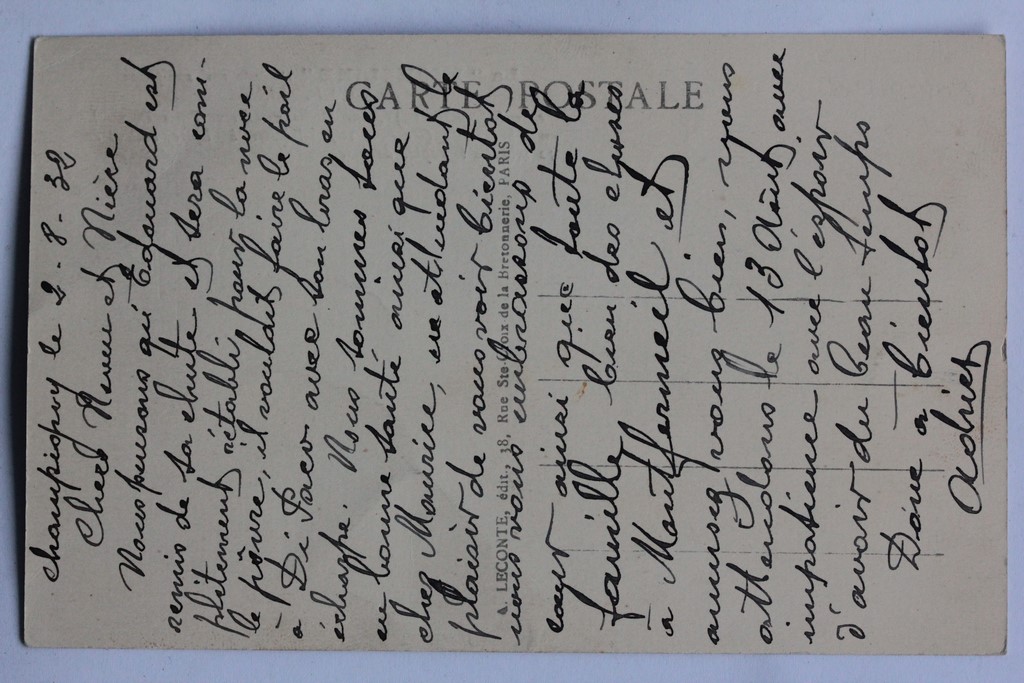 CARTE POSTALE
A. LECONTE, édit., 38, Rue Ste-Croix de la Bretonnerie, PARIS
Champigny le 2. 8. 32
Chers Neveu et Nièce
Nous pensons qui Edouard est
remis de sa chute et sera com-
plitement rétabli pour la noce
le pôvre, il voulait faire le poil
à Di Paco avec son bras en
écharpe. Nous sommes tous
en bonne santé ainsi que
chez Maurice, en attendant le
plaisir de vous voir bientot
nous vous embrassons de
cœur ainsi que toute la
famille bien des choses
à Montfermeil et
amusez vous bien, vous
attendons le 13 Août avec
impatience avec l'espoir
d'avoir du beau temps
Donc a bientot